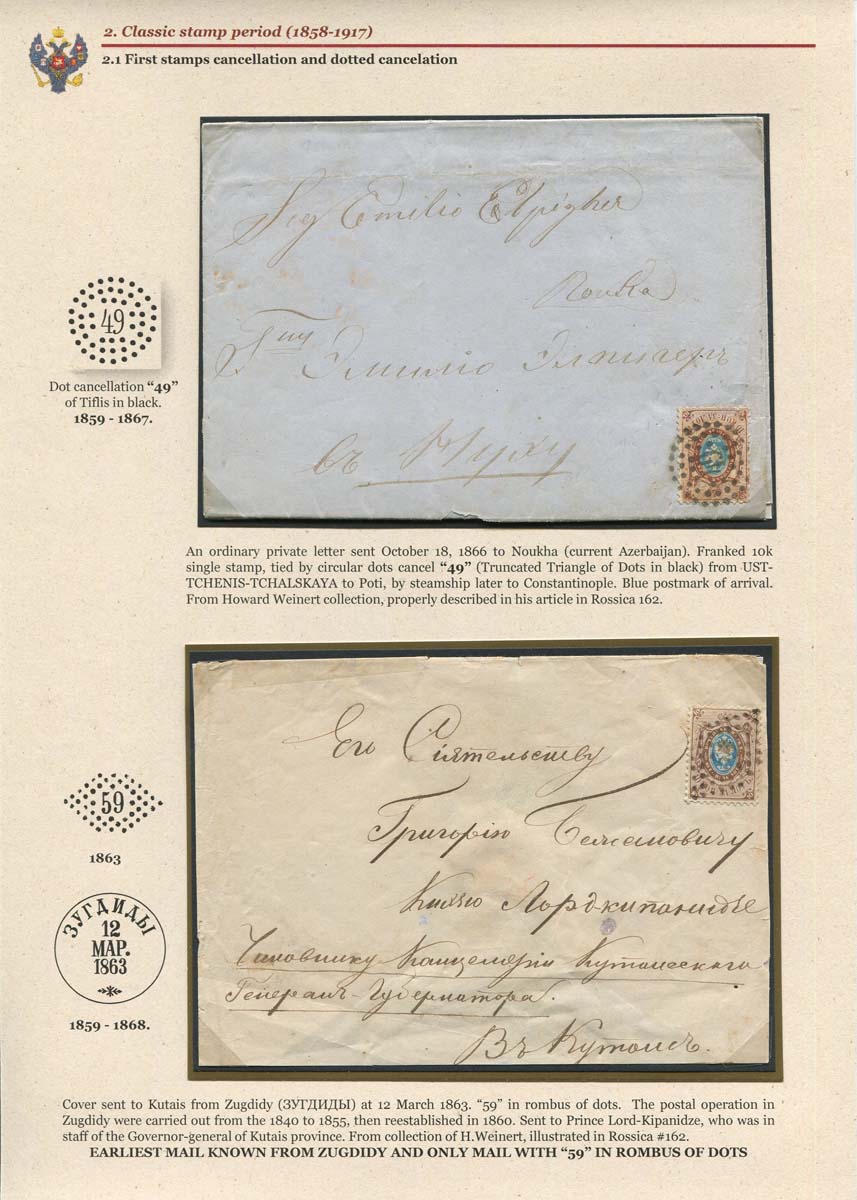 2. Classic stamp period (1858-1917)
2.1 First stamps cancellation and dotted cancelation
Sig Emilio
Noukha
Эмилио
въ Нуху
49
Dot cancellation “49”
of Tiflis in black.
1859 - 1867.
An ordinary private letter sent October 18, 1866 to Noukha (current Azerbaijan). Franked 10k
single stamp, tied by circular dots cancel “49” (Truncated Triangle of Dots in black) from UST-
TCHENIS-TCHALSKAYA to Poti, by steamship later to Constantinople. Blue postmark of arrival.
From Howard Weinert collection, properly described in his article in Rossica 162.
Его Сіятельству
Григорію
Князю Лордкипанидзе
Чиновнику Канцеляріи Кутаисскаго
Генералъ-Губернатора.
Въ Кутаисъ.
59
1863
ЗУГДИДЫ
12
МАР.
1863
1859 - 1868.
Cover sent to Kutais from Zugdidy (ЗУГДИДЫ) at 12 March 1863. “59” in rombus of dots. The postal operation in
Zugdidy were carried out from the 1840 to 1855, then reestablished in 1860. Sent to Prince Lord-Kipanidze, who was in
staff of the Governor-general of Kutais province. From collection of H.Weinert, illustrated in Rossica #162.
EARLIEST MAIL KNOWN FROM ZUGDIDY AND ONLY MAIL WITH “59” IN ROMBUS OF DOTS